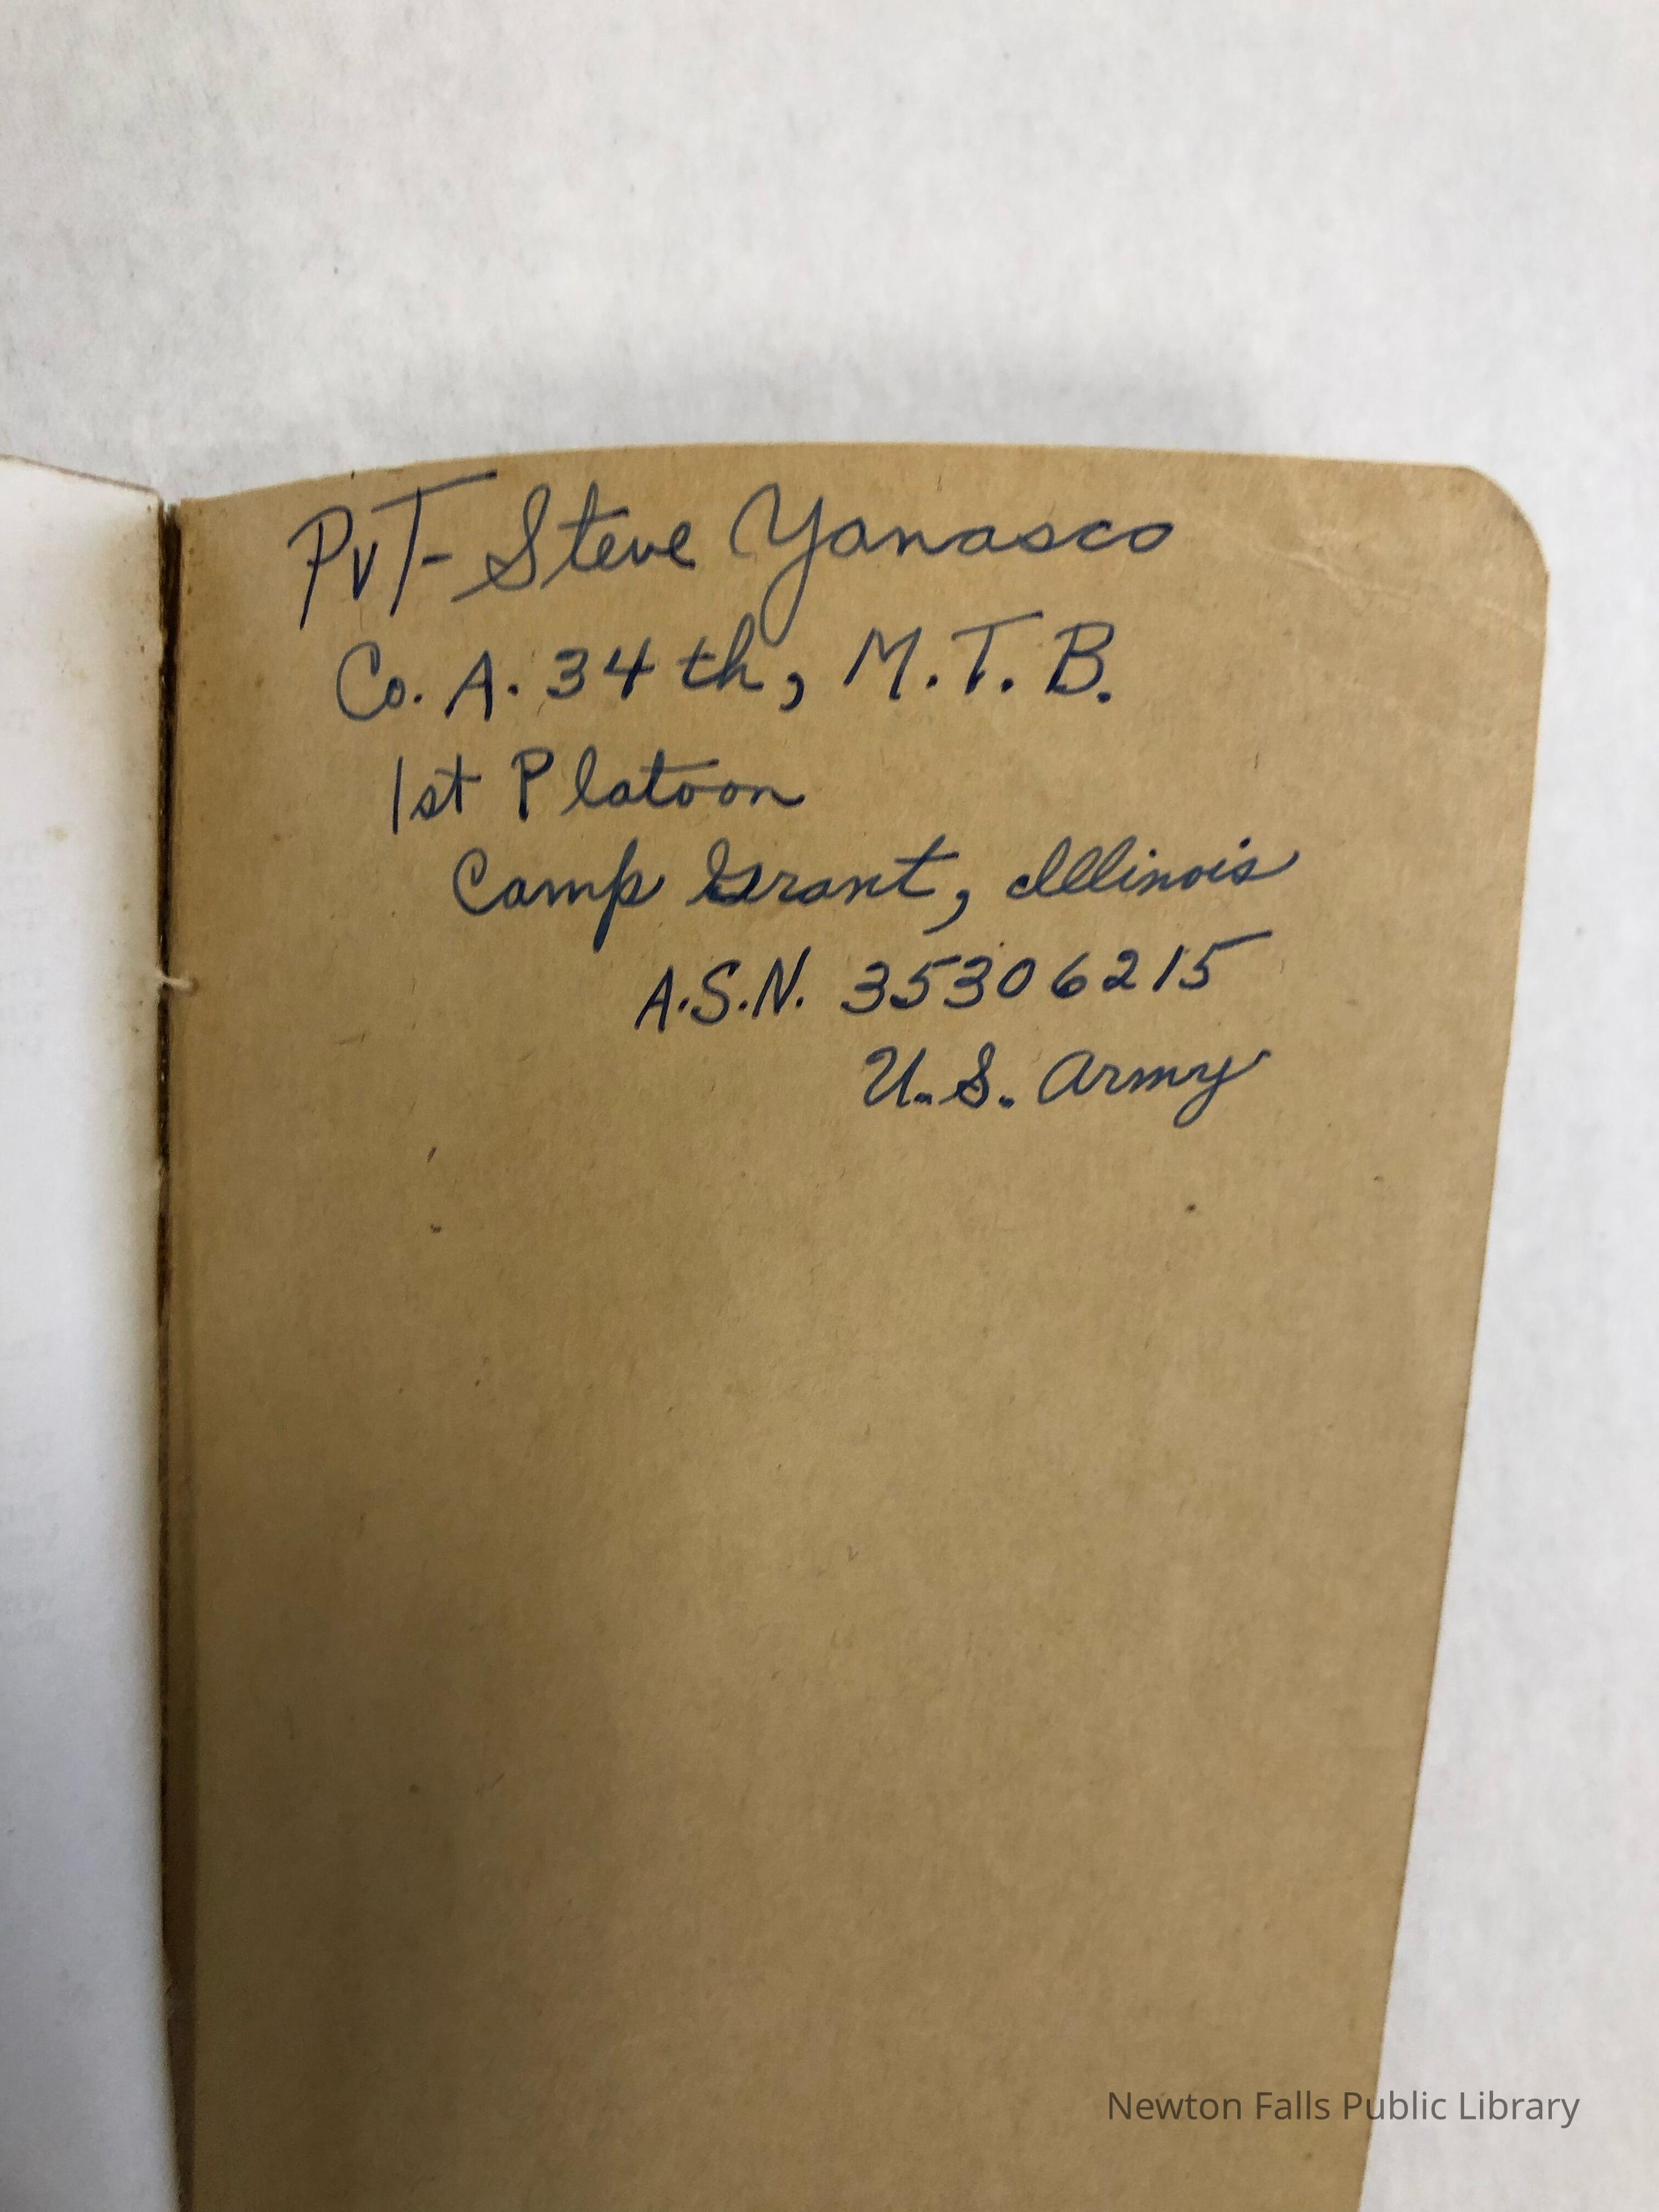 PvT- Steve Yanasco
Co. A. 34th, M.T.B.
1st Platoon
Camp Grant, Illinois
A.S.N. 35306215
U.S. Army
Newton Falls Public Library